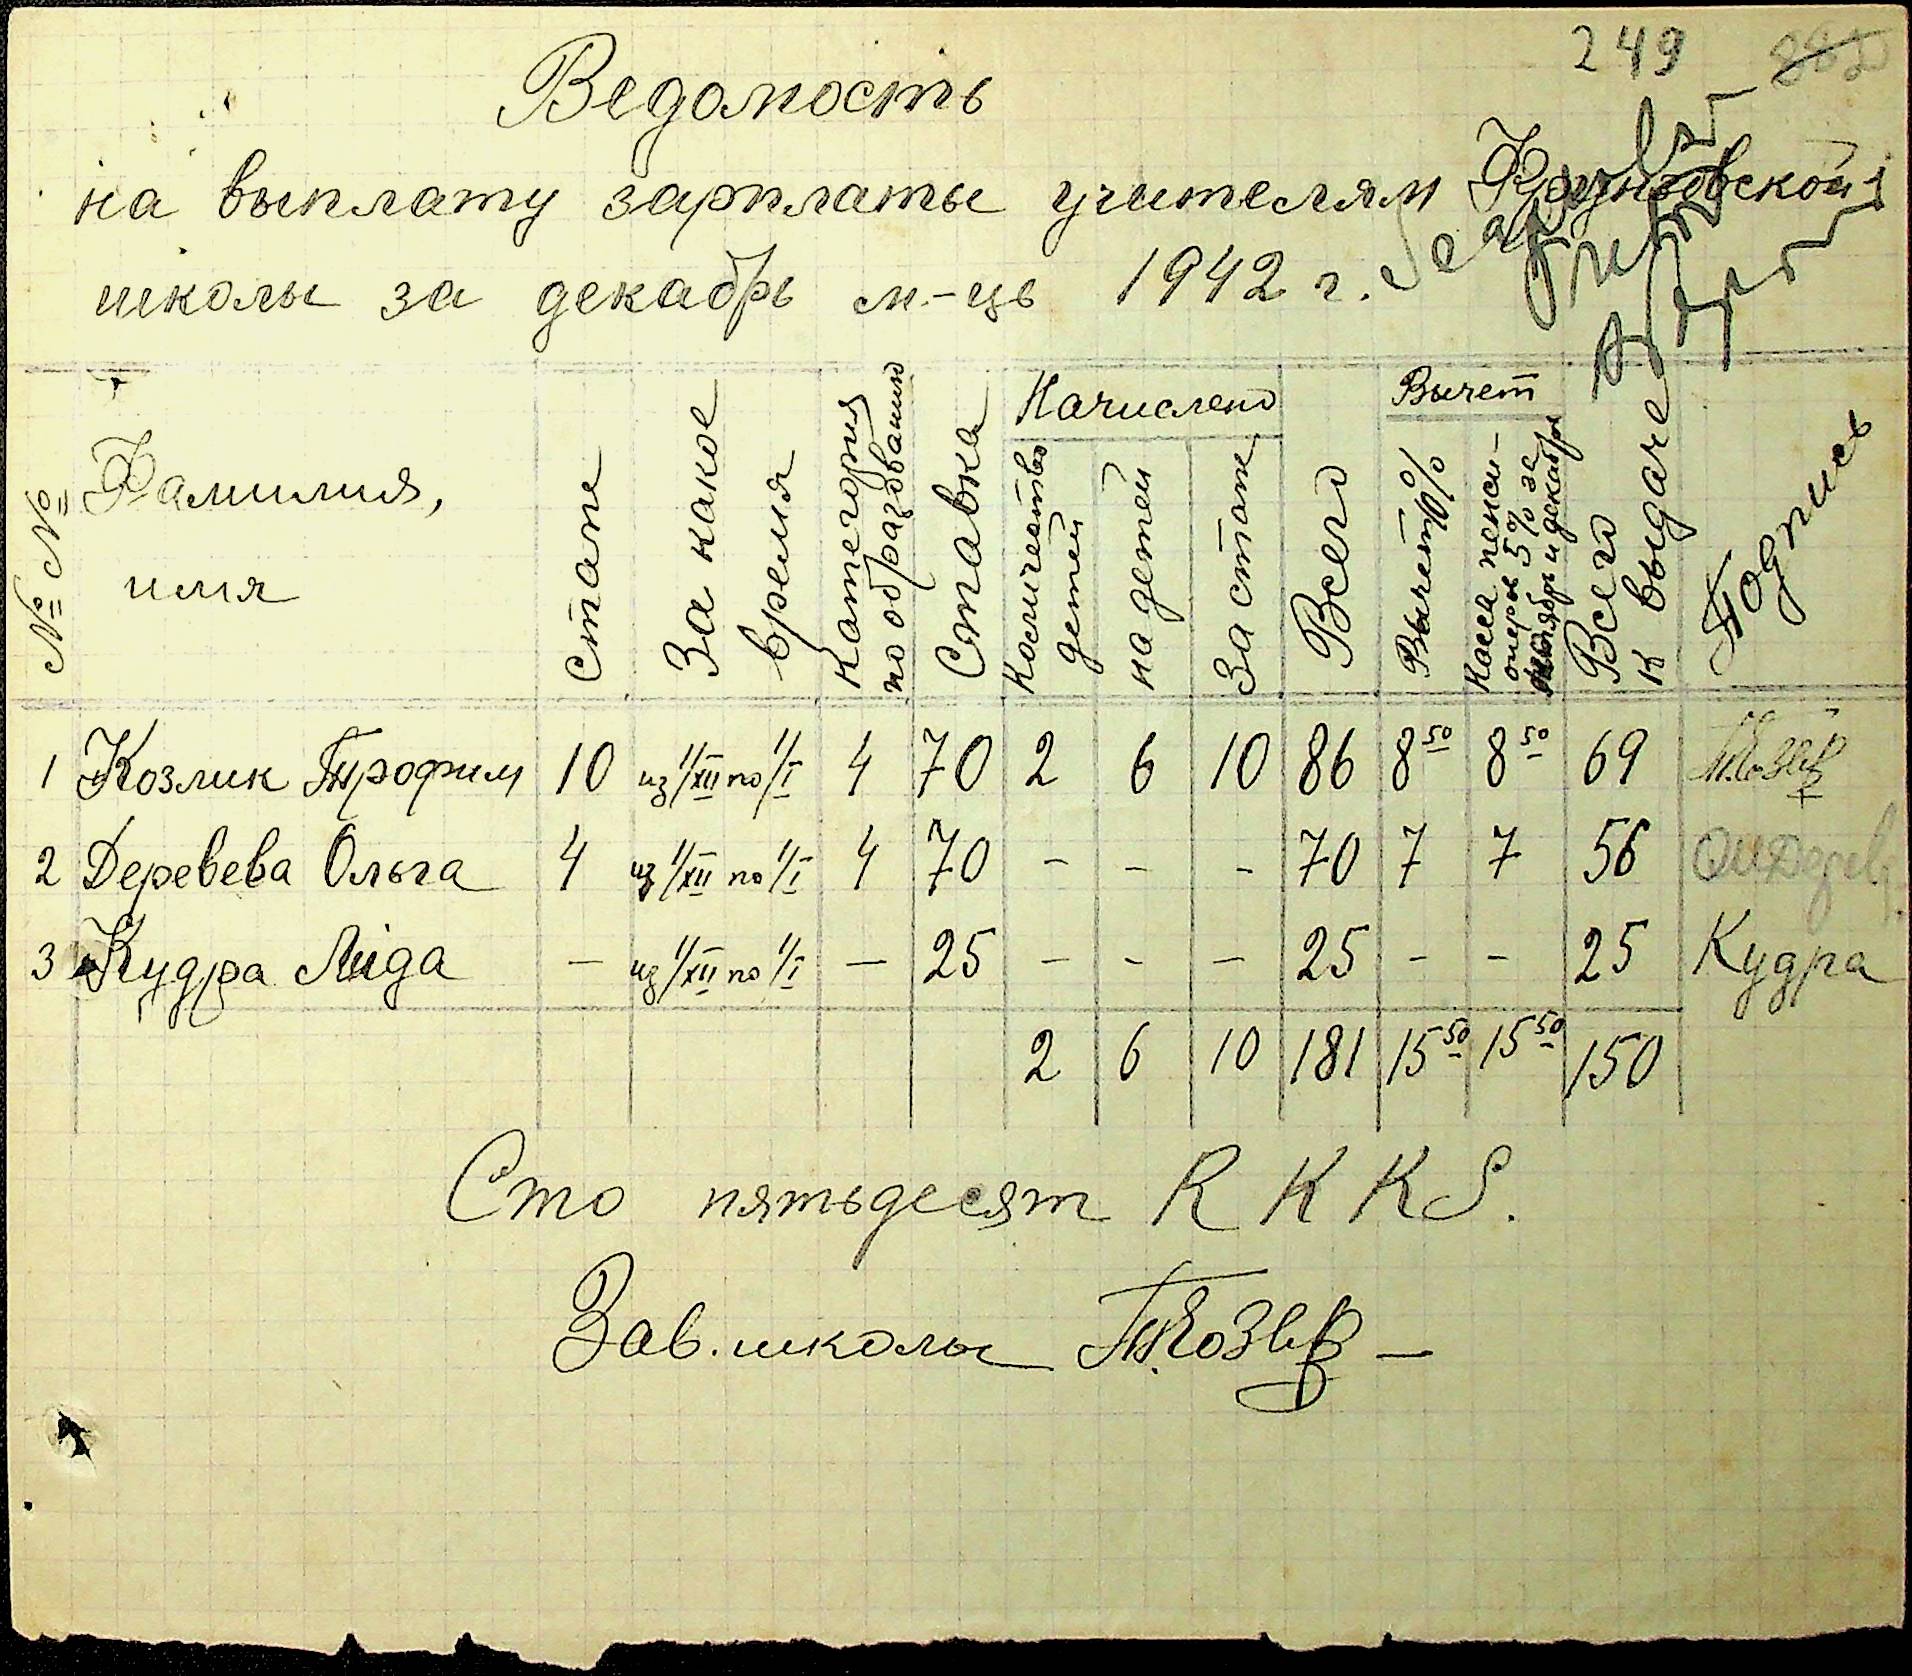 249
Ведомость
на выплату зарплаты учителям
школы за декабрь м.-ць 1942 г.
№ № Фамилия, имя стаж За какое время Категория по образованию Ставка Начислено Количество детей на детей За стаж Всего Вычет Вычет 10% Касса пенсионеров 5% за ноябрь и декабрь Всего к выдаче Подпись
1 Козлик Трофим 10 из 1/XII по 1/I 4 70 2 6 10 86 8 50 8 50 69
2 Деревева Ольга 4 из 1/XII по 1/I 4 70 - - - 70 7 7 56
3 Кудра Ліда - из 1/XII по 1/I - 25 - - - 25 - - 25 Кудра
2 6 10 181 15 50 15 50 150
Сто пятьдесят R K K S.
Зав. школы